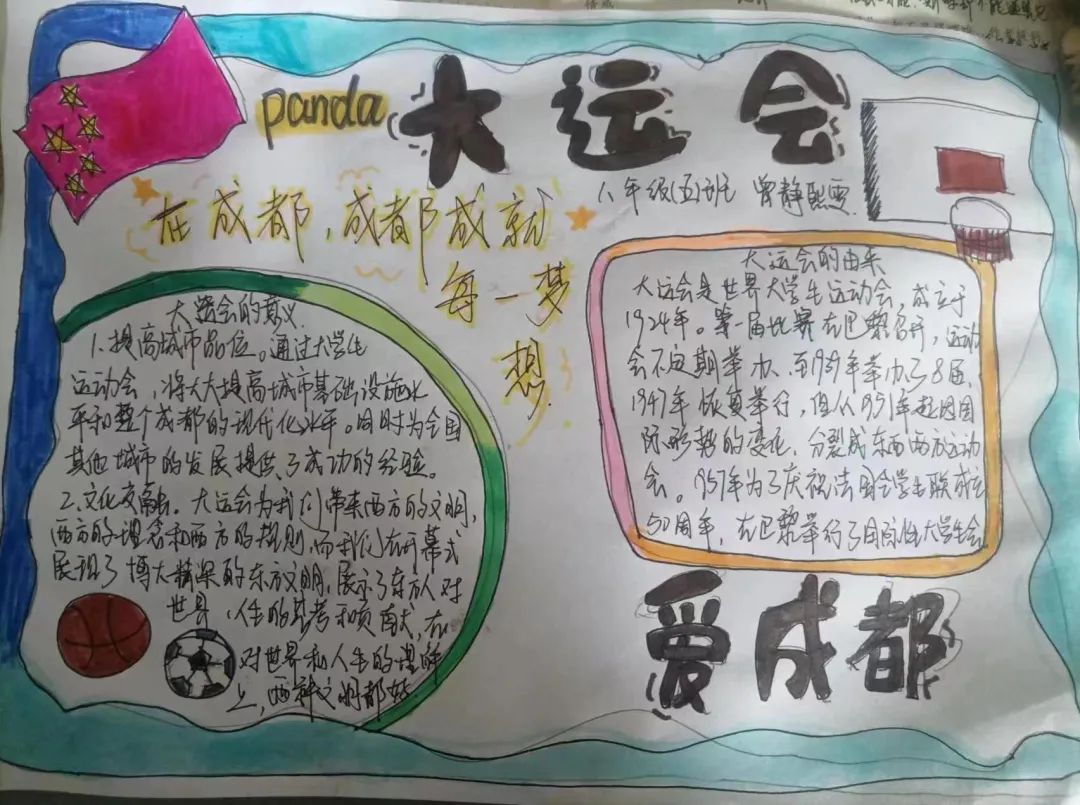 panda 大运会
八年级(五)班 曾静熙雯
在成都,成都成就
每一梦
想
大运会的意义
1.提高城市品位。通过大学生
运动会,将大大提高城市基础设施水
平和整个成都的现代化水平。同时为全国
其他城市的发展提供了成功的经验。
2.文化交融。大运会为我们带来西方的文明,
西方的理念和西方的规则,而我们在开幕式
展现了博大精深的东方文明,展示了东方人对
世界、人生的思考和贡献,在
对世界和人生的理解
上,两种文明都
大运会的由来
大运会是世界大学生运动会,成立于
1924年。第一届比赛在巴黎召开,运动
会不定期举办、至1939年举办了8届,
1947年恢复举行,但从1951年起因国
际形势的变化,分裂成东西两方运动
会。1957年为了庆祝法国全学生联成立
50周年,在巴黎举行了国际性大学生会
爱成都